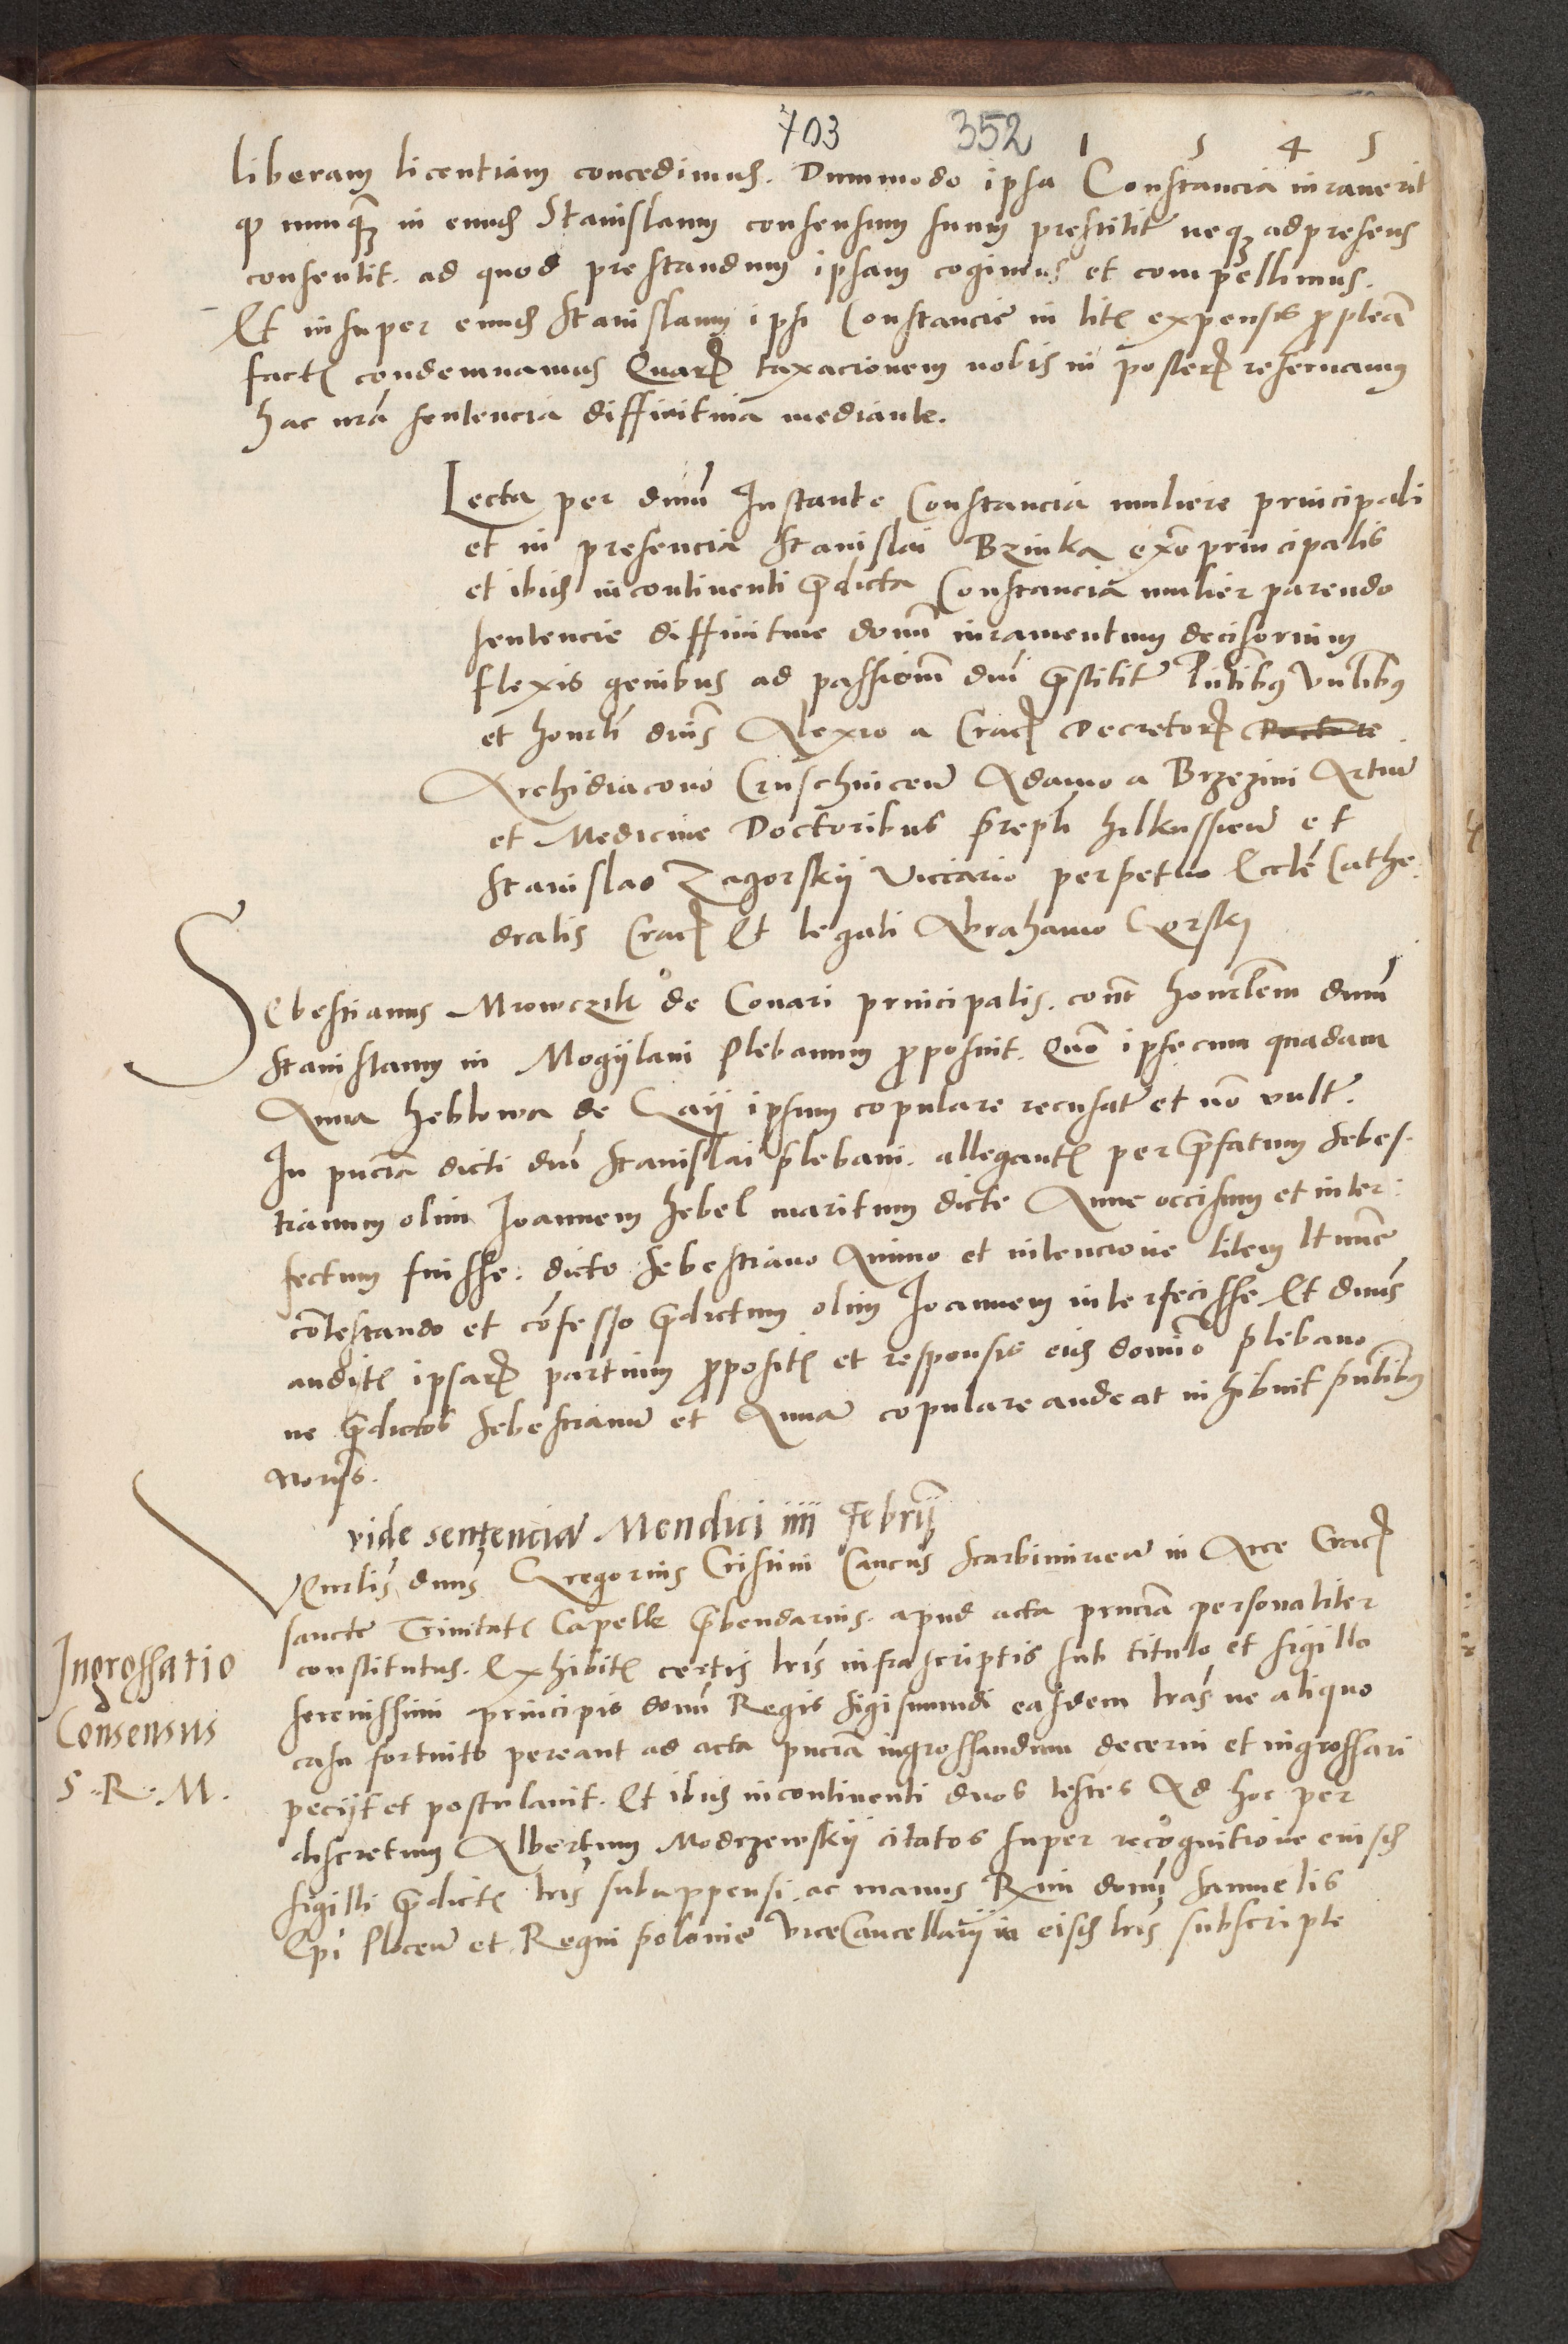 703 352 1 5 4 5
liberam licentiam concedimus. Dummodo ipsa Constancia iuraverit
qꝫ nunqꝫ in eund Stanislaum consensum suum prestitit neqꝫ adpresens
consentit. ad quod prestandum ipsam cogimus et compellimus.
Et insuper eund Stanislaum ipsi Constancie in lit expensis pptea
fact condemnamus Quarꝝ taxacionem nobis in posterꝝ reservamus
hac nrã sentencia diffinitiva mediante.
Lecta per dnum Instante Constancia muliere principali
et in presencia Stanislai Bzinka exõ principalis
et ibid incontinenti pdicta Constancia mulier parendo
sentencie diffinitive domi iuramentum decisorium
flexis genibus ad passionem dni pstitit
et honorli dnis Alexio a Crac Decretorꝝ Doctore
Archidiacono Cruschvicen Adamo a Brzezini Artium
et Medicine Doctoribus prepli hilkussien et
Stanislao Zagorskij Viccario perpetuo Eccleẽ Cathe-
dralis Crac Et legali Abrahamo Gorskj
Sebestianus Mrowczik de Conari principalis. cont honorlem dnum
Stanislaum in Mogijlani Plebanum pposuit. Quõ ipse cum quadam
Anna heblowa de Gaij ipsum copulare recusat et nõ vult.
In pncia dicti dni Stanislai plebani. allegant per pfatum Sebes-
tianum olim Joannem hebel maritum dicte Anne occisum et inter-
fectum fuisse. dicto Sebestiano Animo et intencione litem ltime
cõtestando et cõfesso pdictum olim Joannem interfecisse Et dnus
audit ipsarꝝ partium pposit et responsis eid domino plebano
ne pdictos Sebestianum et Annam copulare audeat inhibuit pntibus
Noriis.
vide sentencia Mendici iiii Februarij
Venrlis dnus Gregorius Cristini Cancus Scarbimirien in Arce Crac
sancte Trinitat Capelle pbendarius. apud acta pncia personaliter
constitutus. Exhibit certis lris infrascriptis sub titulo et sigillo
serenissimi principis domi Regis Sigismundi easdem lras ne aliquo
casu fortuito pereant ad acta pncia ingrossandum decerni et ingrossari
pecijt et postulavit. Et ibid incontinenti duos testes Ad hoc per
discretum Albertum Modrzewskij citatos super recognitione eiusd
sigilli pdict lris subappensi. ac manus Rxmi domi Samuelis
Epi Plocen et Regni polonie ViceCancellarij in eisd lris subscripte
Ingrossatio
Consensus
S. R. M.